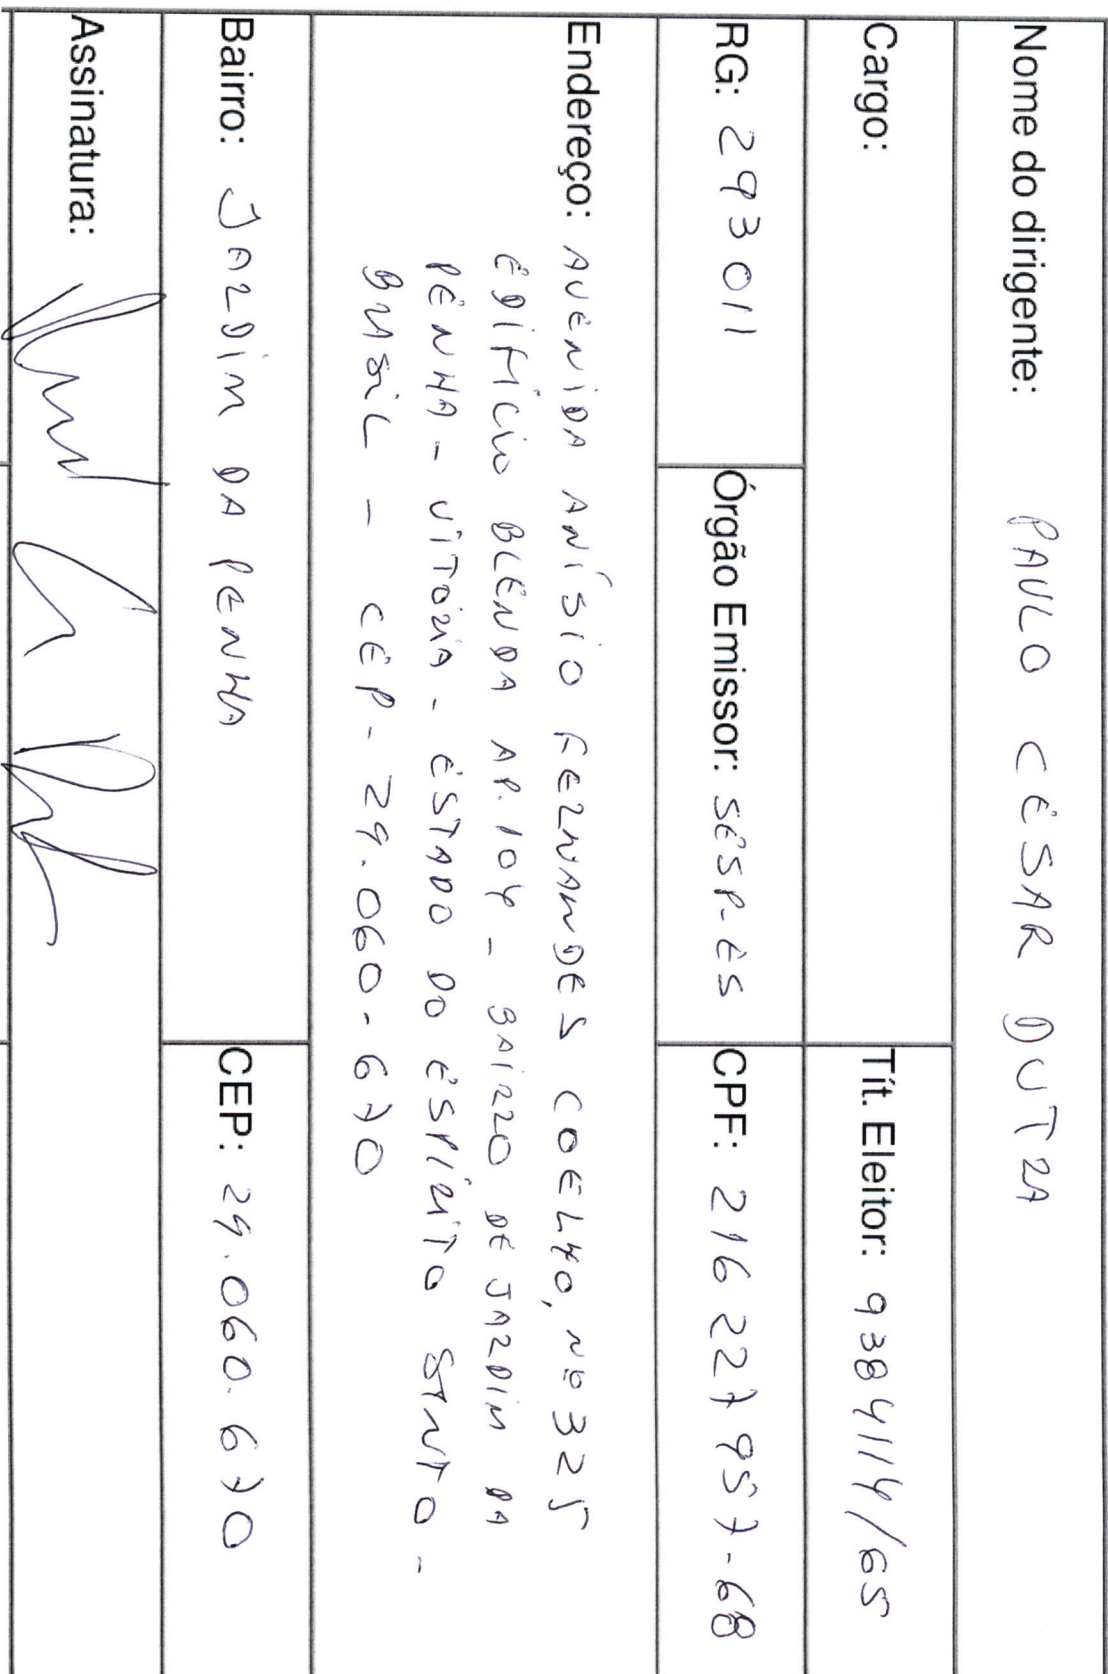 Nome do dirigente: PAULO CÉSAR DUTRA
Cargo:
Tít. Eleitor: 9384114/65
RG: 293011
Órgão Emissor: SESP-ES
CPF: 216 227 957-68
Endereço: AVENIDA ANÍSIO FERNANDES COELHO, Nº 325
EDIFÍCIO BLENDA AP. 104 - BAIRRO DE JARDIM DA
PENHA - VITÓRIA - ESTADO DO ESPÍRITO SANTO -
BRASIL - CEP - 29.060-670
Bairro: JARDIM DA PENHA
CEP: 29.060.670
Assinatura: